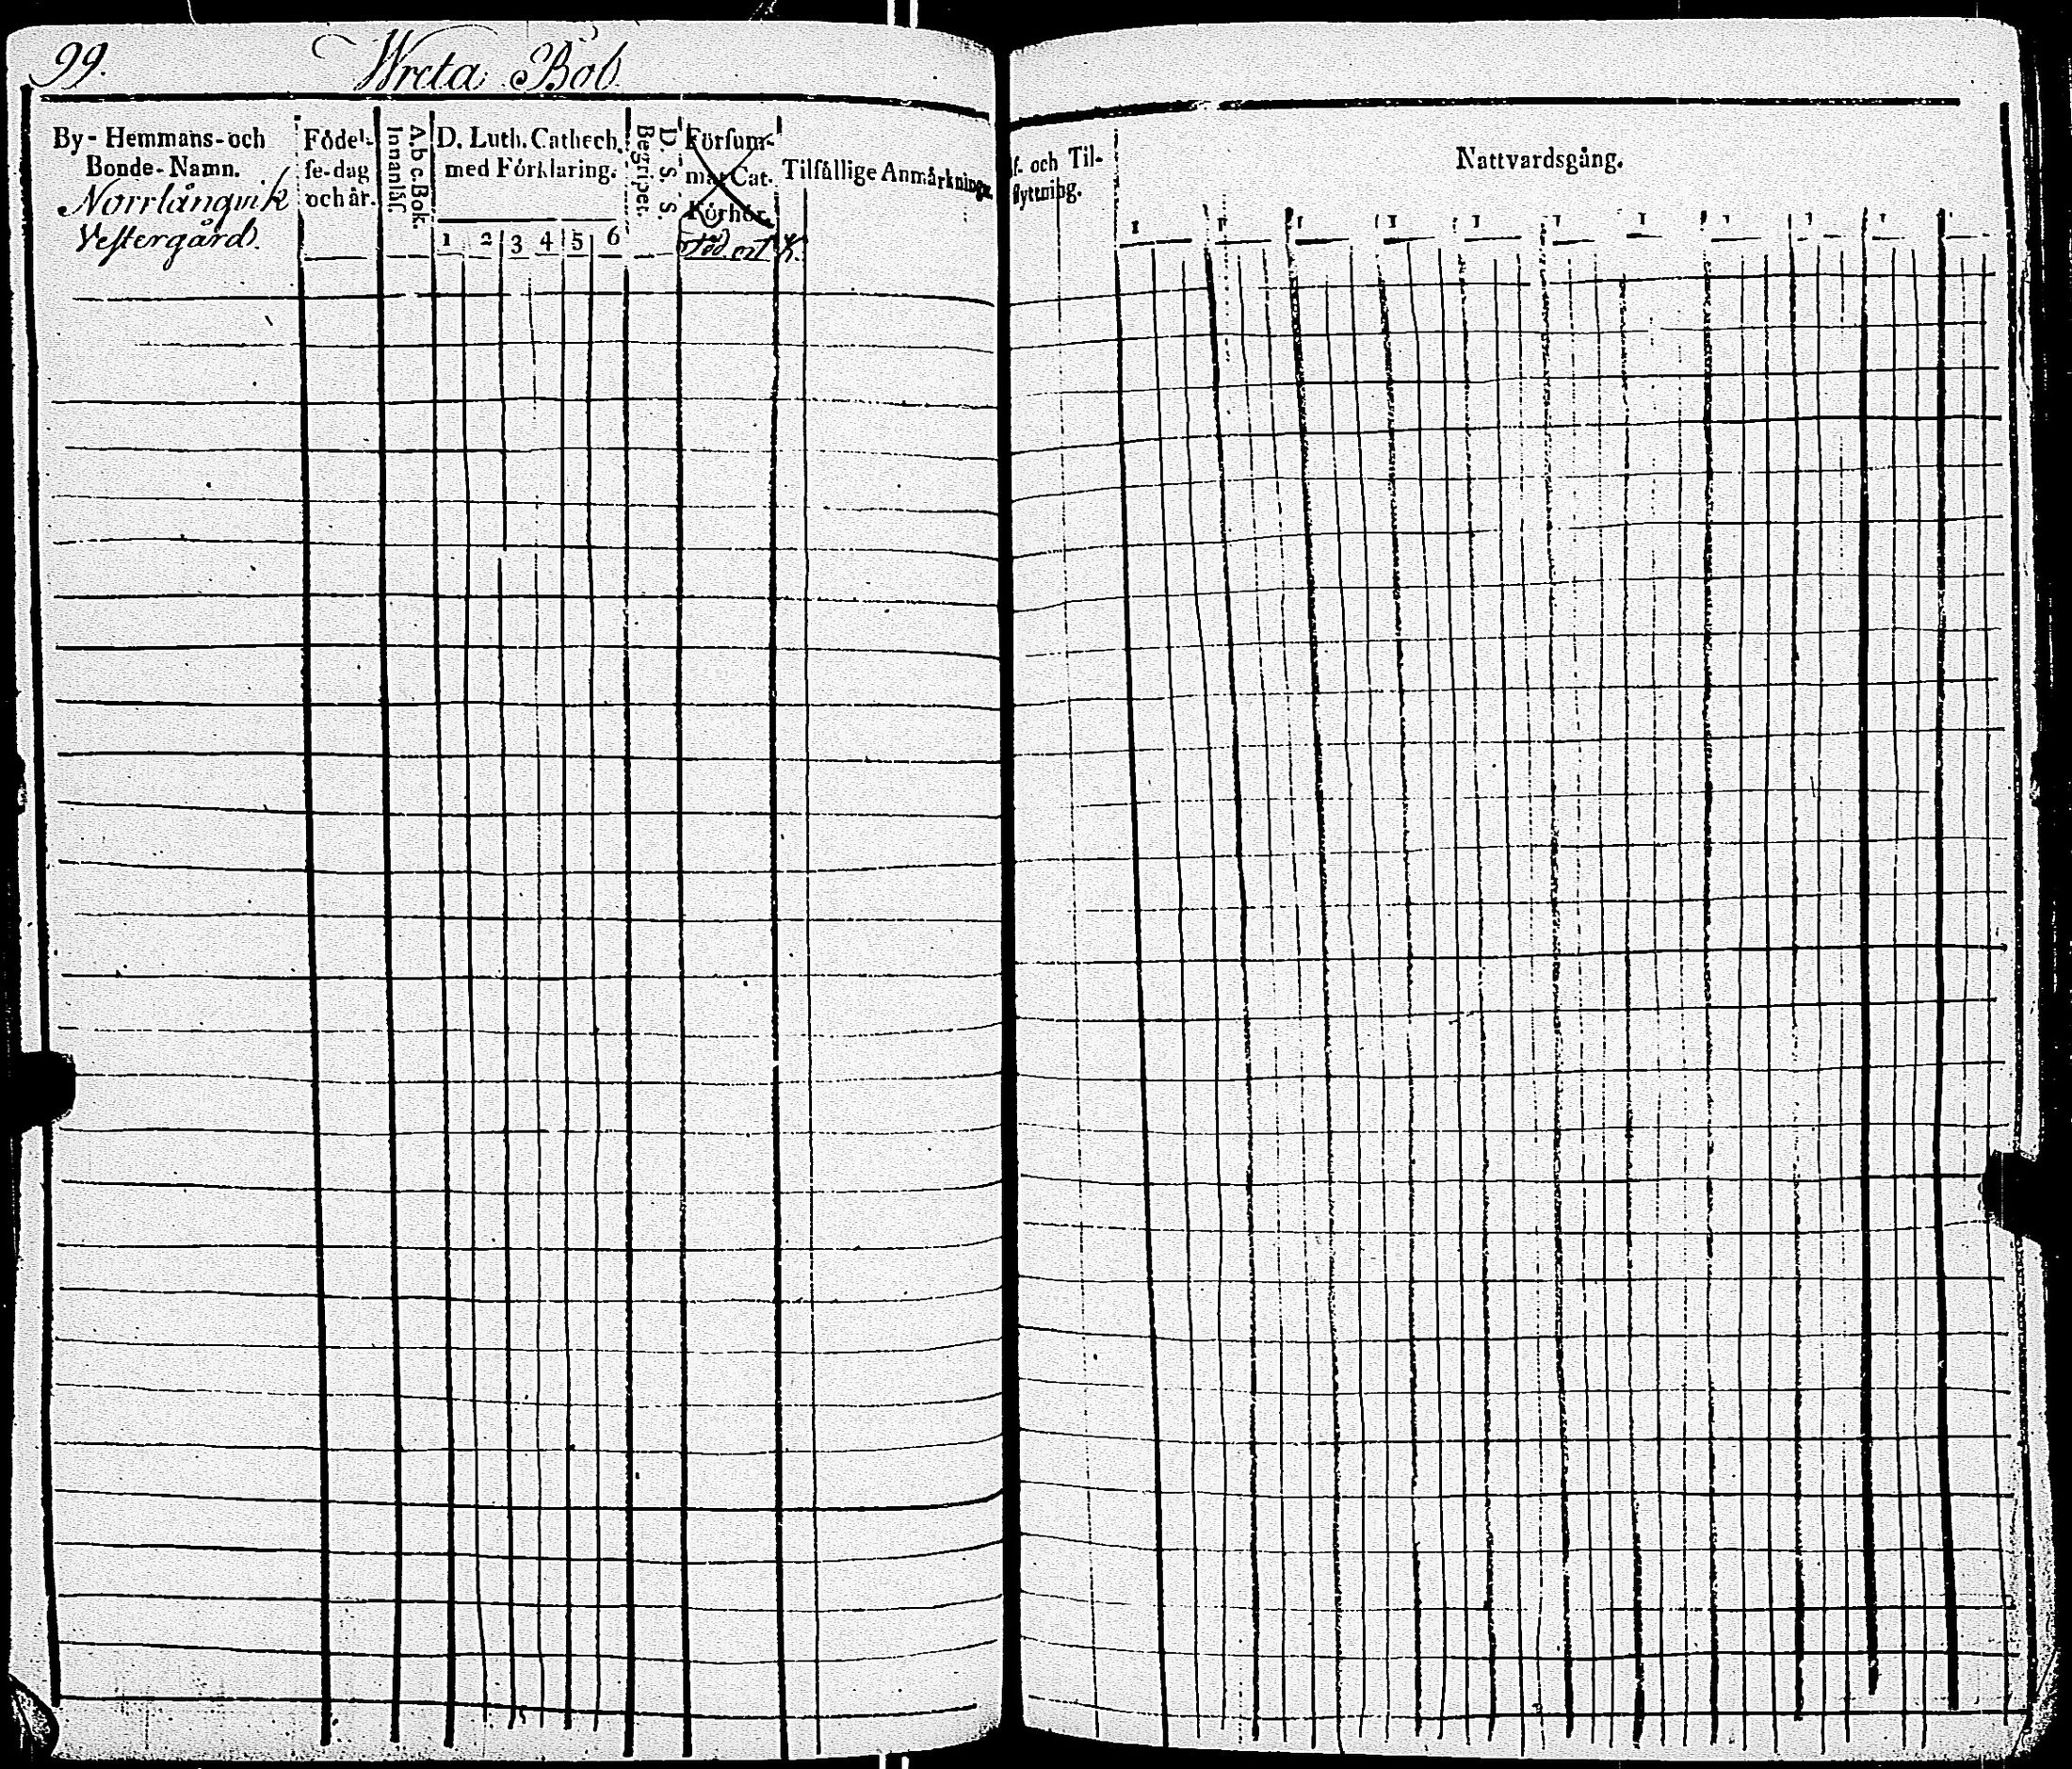 99.
Wreta Bol.
By- Hemmans- och
Bonde-Namn.
Norrlångvik
Vestergård.
Födel-
se-dag
och år.
A.b.c-Bok.
Innanläs.
D. Luth. Cathech.
med Förklaring.
1 2 3 4 5 6
D. S. S.
Begripet.
Försum-
mat Cat.
Förhör.
Tilfällige Anmärkningar
f- och Til-
flyttning.
Nattvardsgång.
1 1 1 1 1 1 1 1 1 1 1